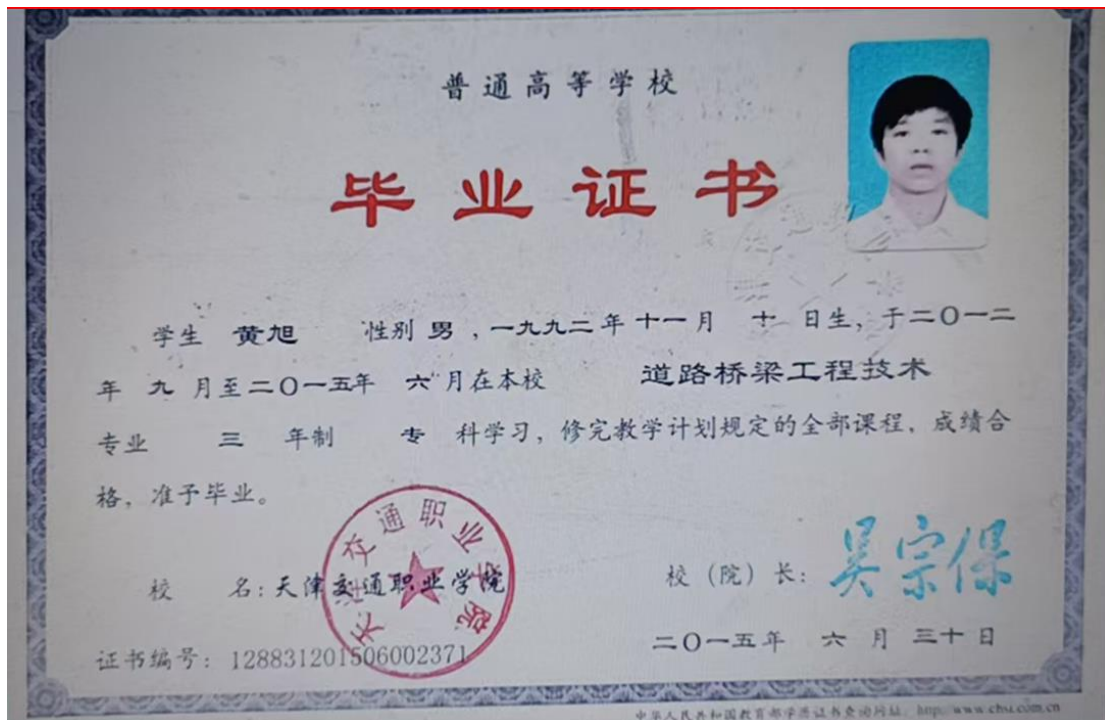 普通高等学校
毕业证书
学生 黄旭 性别 男，一九九二年十一月 十 日生，于二〇一二
年 九 月至二〇一五年 六 月在本校 道路桥梁工程技术
专业 三 年制 专 科学习，修完教学计划规定的全部课程，成绩合
格，准予毕业。
天津交通职业学院
校 名：天津交通职业学院
校（院）长：吴宗保
证书编号：128831201506002371
二〇一五年 六 月 三十日
中华人民共和国教育部学历证书查询网址：http: www.chsi.com.cn